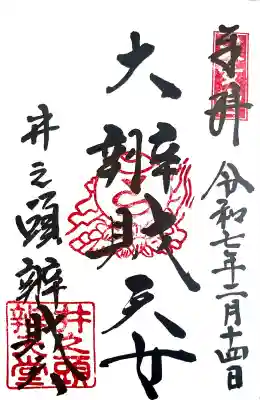 奉拝
令和七年二月十四日
大辨財天女
井之頭辨財天
井之頭
辨財堂